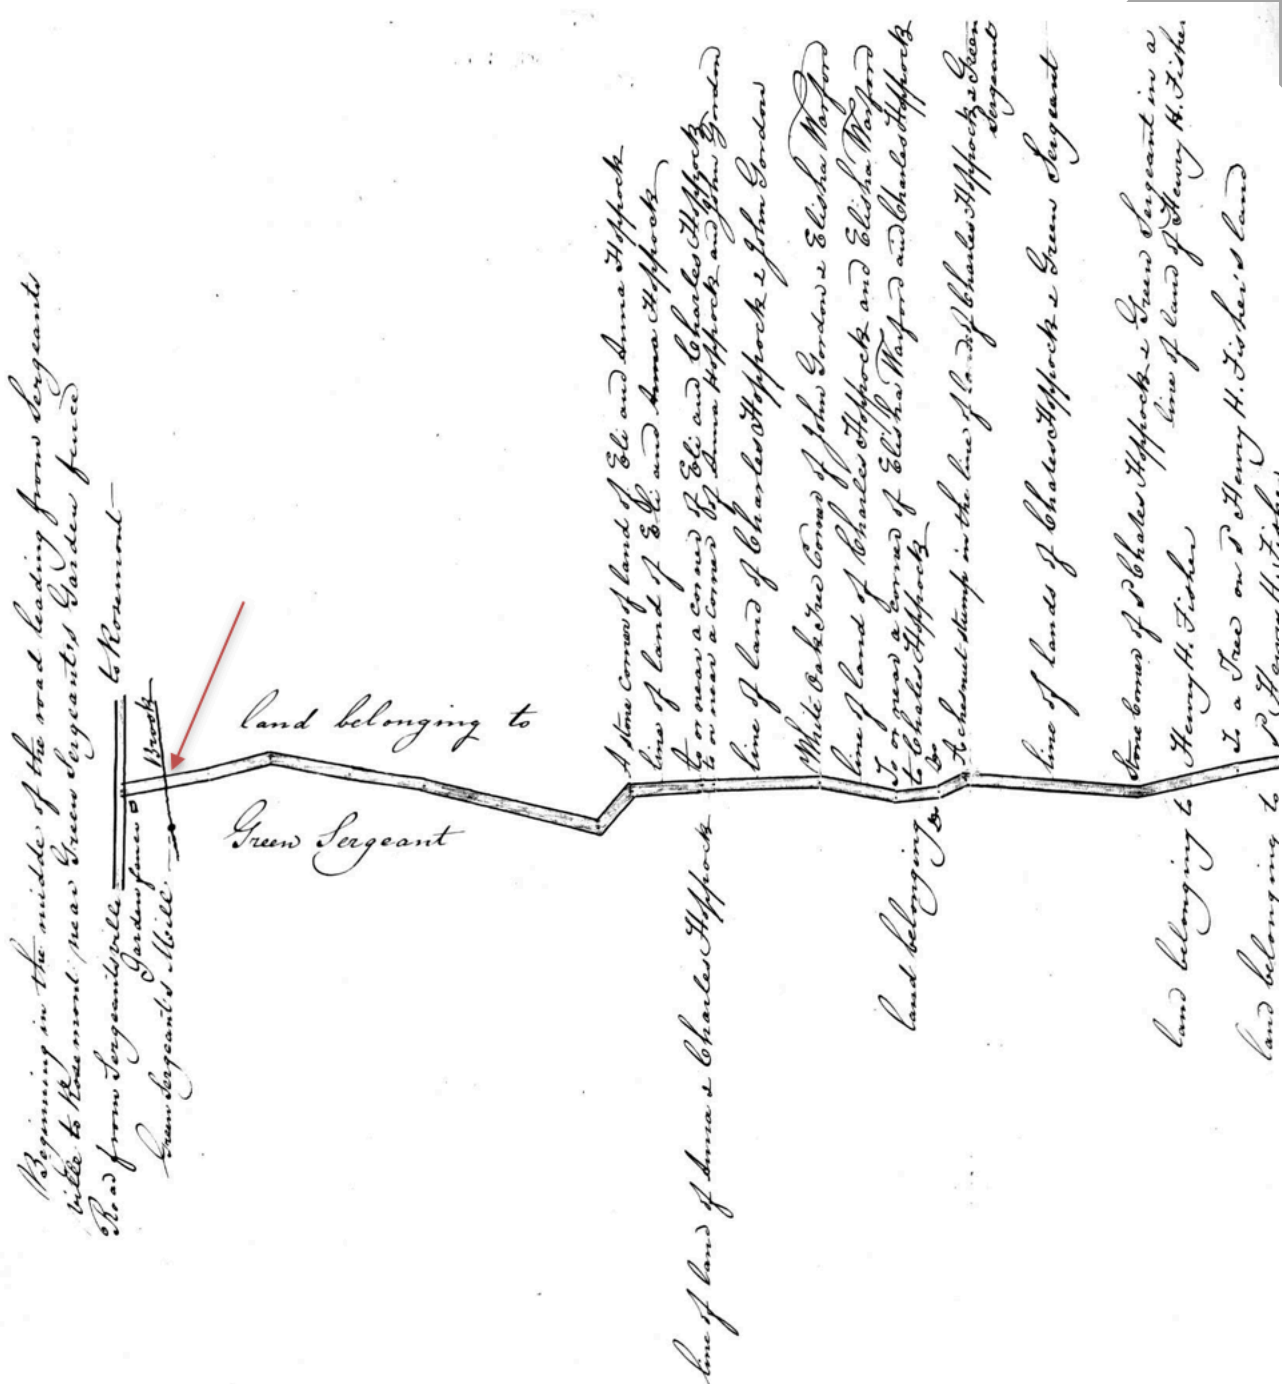 Beginning in the middle of the road leading from Sergeants
ville to Rosemont near Green Sergeant's Garden fence
Road from Sergeantsville to Rosemont
Garden fence
Brook
Green Sergeant's Mill
land belonging to
Green Sergeant
A stone corner of land of Eli and Anna Hoppock
line of land of Eli and Anna Hoppock
to or near a corner of Eli and Charles Hoppock
to or near a corner of Anna Hoppock and John Gordon
line of land of Anna & Charles Hoppock
line of land of Charles Hoppock & John Gordon
White Oak Tree Corner of John Gordon & Elisha Warford
line of land of Charles Hoppock and Elisha Warford
To or near a corner of Elisha Warford and Charles Hoppock
land belonging to Charles Hoppock
Do Do
A chesnut stump in the line of land of Charles Hoppock & Green
Sergeant
line of lands of Charles Hoppock & Green Sergeant
Stone Corner of Charles Hoppock & Green Sergeant in a
line of land of Henry H. Fisher
land belonging to Henry H. Fisher
To a Tree on Henry H. Fisher's land
land belonging to Henry H. Fisher